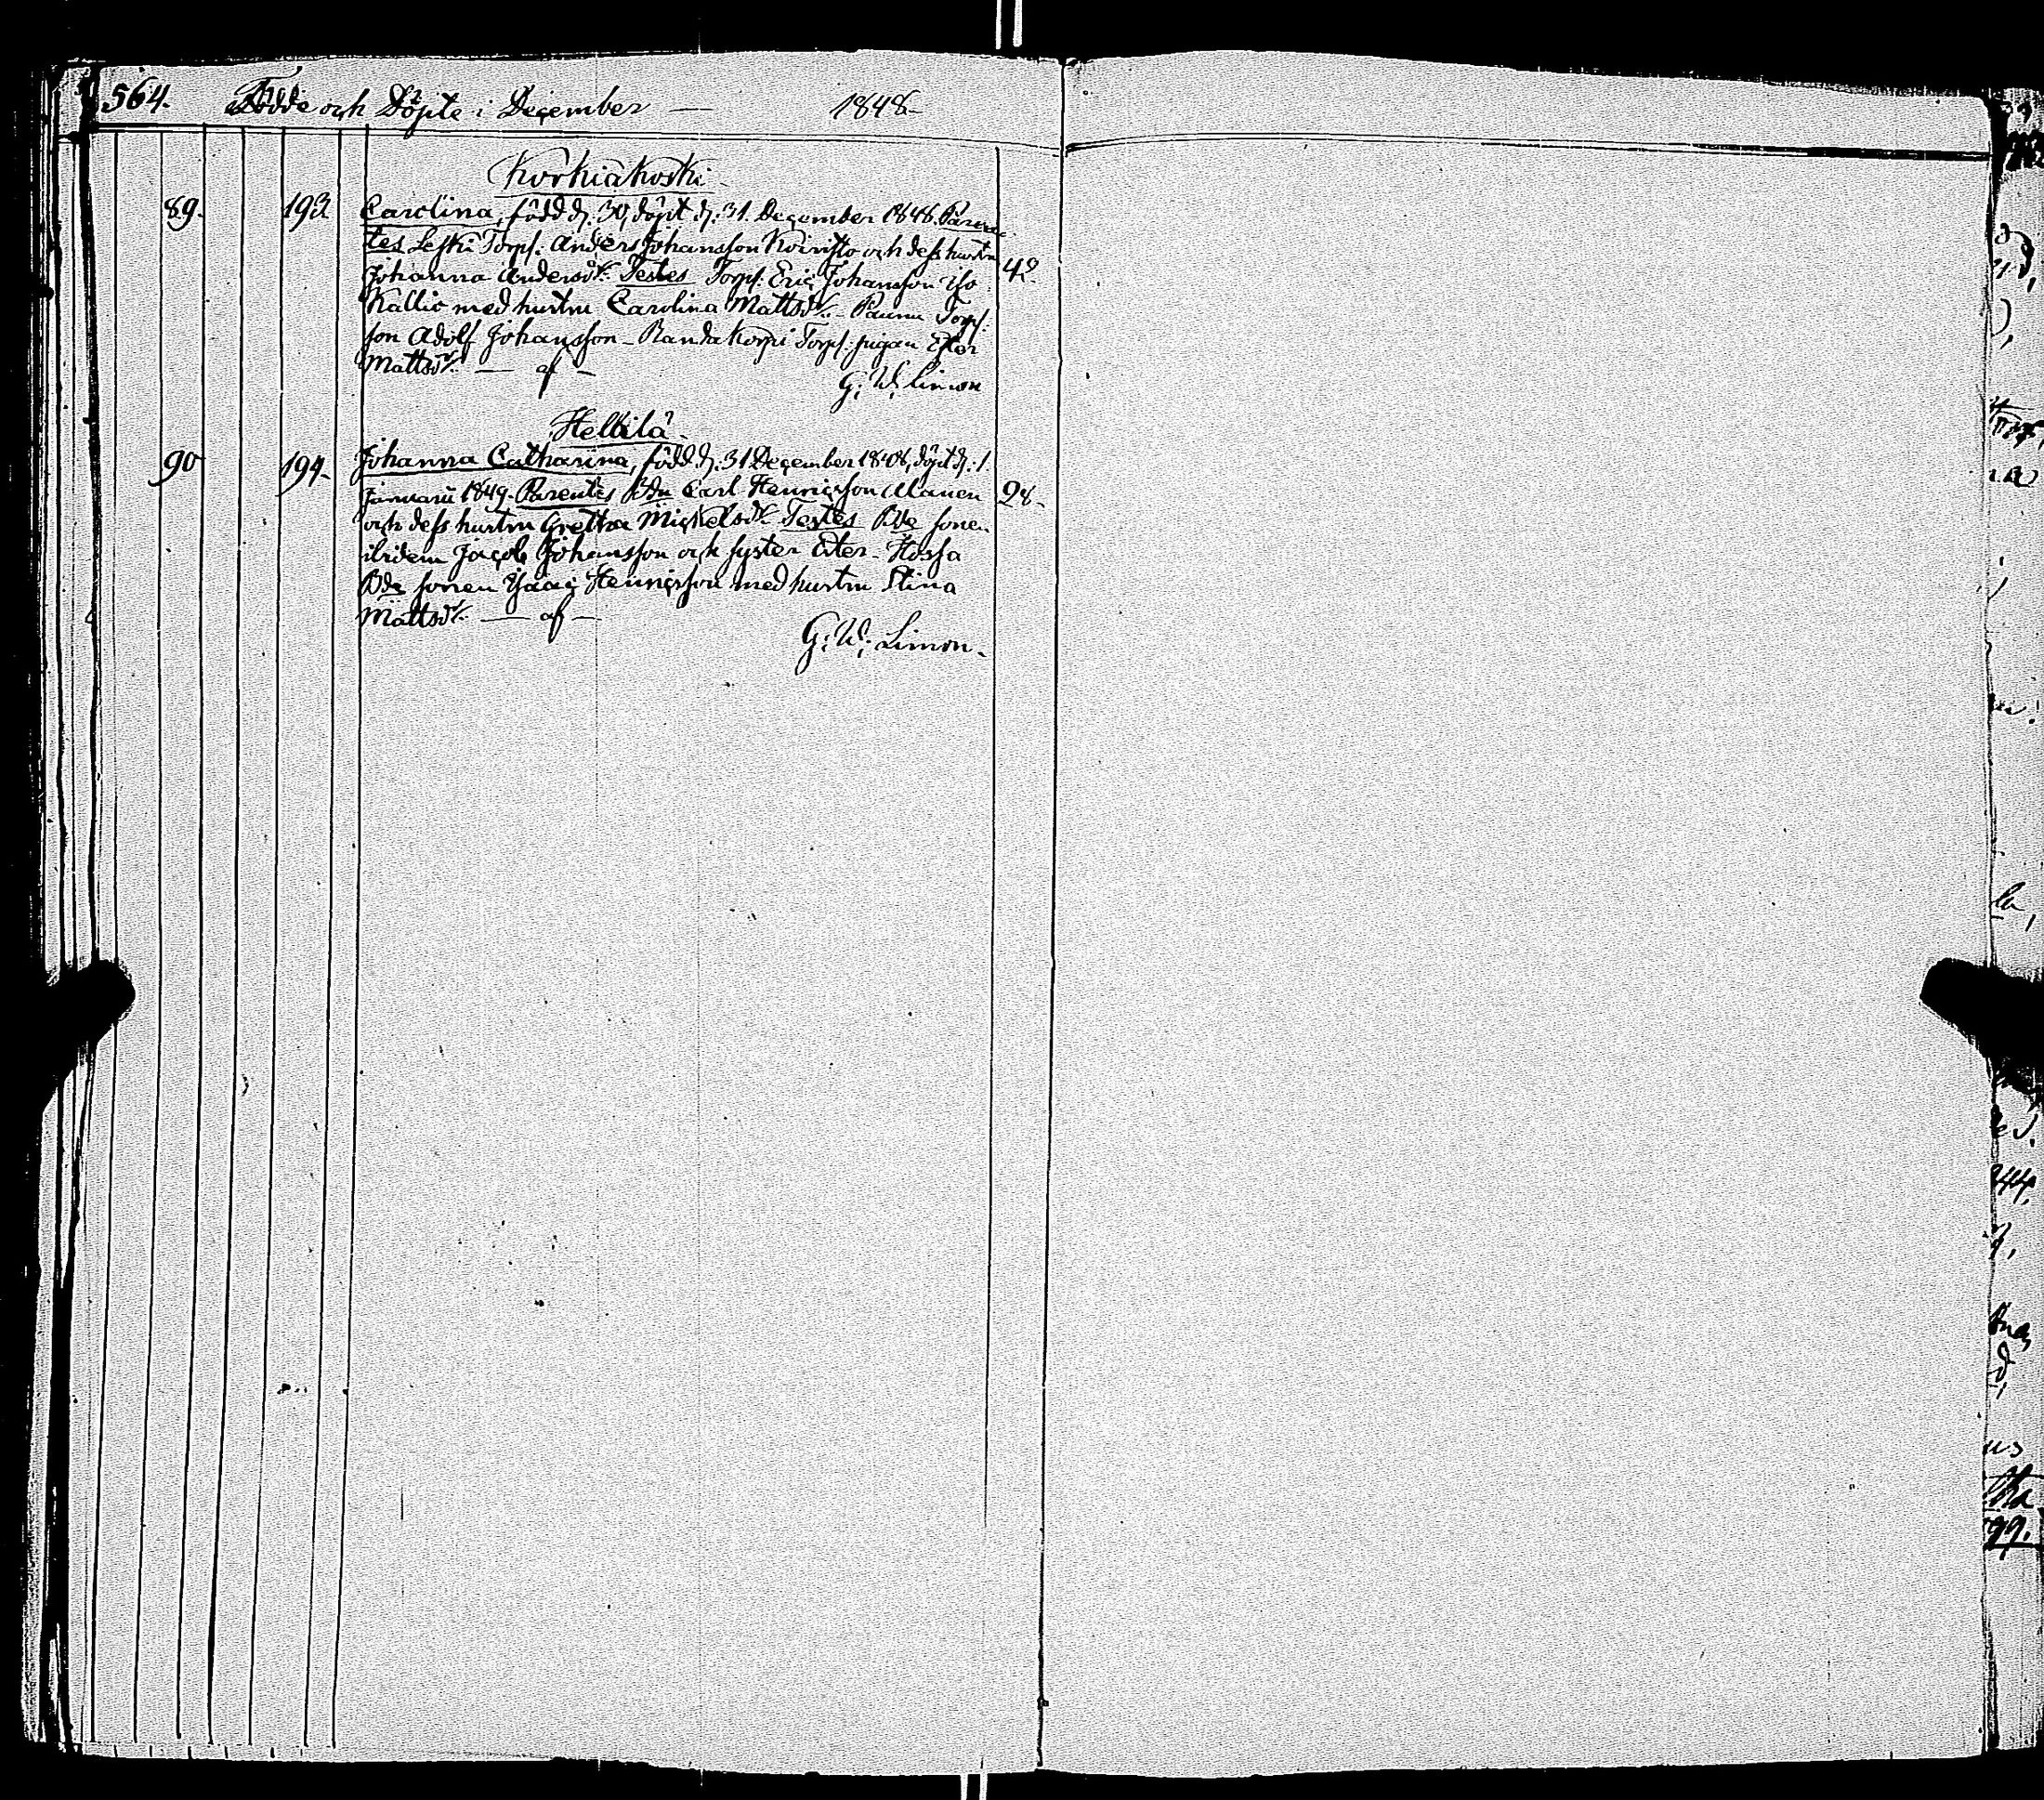 564. Födde och Döpte i December — 1848-
Korkiakoski-
89. 193. Carolina, född d. 30, döpt d. 31. December 1848. Paren-
tes Leski Torp. Anders Johansson Koivisto och dess hustru 42.
Johanna Andersdr. Testes Torp. Eric Johansson Iso
Kallio med hustru Carolina Mattsdr. Paunu Torp.
son Adolf Johansson - Randakorpi Torp. pigan Ester
Mattsdr. — af —
G. W. Limon
Heikilä-
90 194. Johanna Catharina, född d. 31 December 1848, döpt d. 1.
Januarii 1849. Parentes Bdn Carl Henricsson
och dess hustru Gretha Michelsdr. Testes Bde sonen 28.
ibidem Jacob Johansson och syster Hossa
Bde sonen Isaac Henricsson med hustru Stina
Mattsdr. — af —
G. W. Limon.